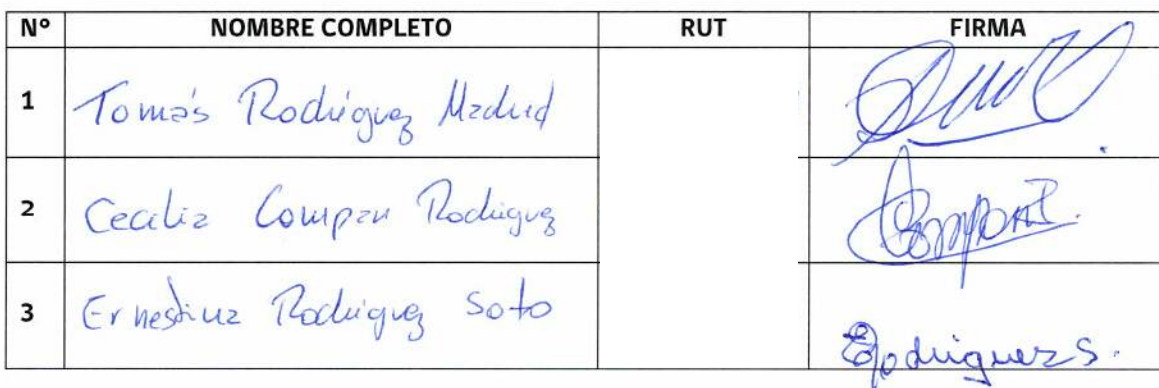 Nº NOMBRE COMPLETO RUT FIRMA
1 Tomás Rodríguez Madrid
2 Cecilia Compan Rodríguez CompanR.
3 Ernestina Rodríguez Soto ERodriguez S.